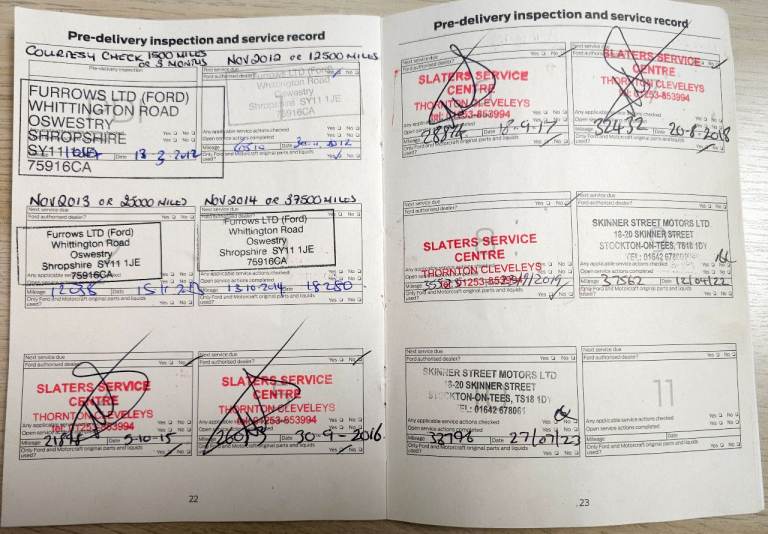 Pre-delivery inspection and service record
COURTESY CHECK 1500 MILES
OR 3 MONTHS
NOV 2012 OR 12500 MILES
Pre-delivery inspection
FURROWS LTD (FORD)
WHITTINGTON ROAD
OSWESTRY
SHROPSHIRE
SY11 1JE
Date 13-3-2012
75916CA
Ford authorised dealer? Yes No
Furrows LTD (Ford)
Whittington Road
Oswestry
Shropshire SY11 1JE
75916CA
Any applicable service actions checked Yes No
Open service actions completed Yes No
Mileage
Date
Only Ford and Motorcraft original parts and liquids
used? Yes No
NOV 2013 OR 25000 MILES
NOV 2014 OR 37500 MILES
Next service due
Ford authorised dealer? Yes No
Furrows LTD (Ford)
Whittington Road
Oswestry
Shropshire SY11 1JE
75916CA
Mileage 12038 Date
Only Ford and Motorcraft original parts and liquids
used? Yes No
Next service due
Furrows LTD (Ford)
Whittington Road
Oswestry
Shropshire SY11 1JE
75916CA
13-10-2014 18280
Only Ford and Motorcraft original parts and liquids
used? Yes No
Next service due Yes No
Ford authorised dealer?
SLATERS SERVICE
CENTRE
THORNTON CLEVELEYS
Tel: 01253-853994
Open service actions completed
Mileage Date 5-10-15
Only Ford and Motorcraft original parts and liquids
used? Yes No
Next service due
Ford authorised dealer? Yes No
SLATERS SERVICE
CENTRE
THORNTON CLEVELEYS
Tel: 01253-853994
30-9-2016
Only Ford and Motorcraft original parts and liquids
used? Yes No
22
Pre-delivery inspection and service record
Ford authorised dealer? Yes No
SLATERS SERVICE
CENTRE
THORNTON CLEVELEYS
Tel: 01253-853994
18-9-17
Only Ford and Motorcraft original parts and liquids
used? Yes No
SLATERS SERVICE
CENTRE
THORNTON CLEVELEYS
Tel: 01253-853994
32432 20-8-2018
Only Ford and Motorcraft original parts and liquids
used? Yes No
Next service due
Ford authorised dealer? Yes No
SLATERS SERVICE
CENTRE
THORNTON CLEVELEYS
Tel: 01253-853994
Only Ford and Motorcraft original parts and liquids
used? Yes No
Next service due
Ford authorised dealer? Yes No
SKINNER STREET MOTORS LTD
18-20 SKINNER STREET
STOCKTON-ON-TEES, TS18 1DY
TEL: 01642 678061
Any applicable service actions checked
Open service actions completed Yes No
Mileage 37562 Date 12/04/22
Only Ford and Motorcraft original parts and liquids
used? Yes No
Next service due
Ford authorised dealer? Yes No
SKINNER STREET MOTORS LTD
18-20 SKINNER STREET
STOCKTON-ON-TEES, TS18 1DY
TEL: 01642 678061
Any applicable service actions checked
Open service actions completed Yes No
Mileage 38798 Date 27/07/23
Only Ford and Motorcraft original parts and liquids
used? Yes No
Next service due
Ford authorised dealer? Yes No
11
Any applicable service actions checked Yes No
Open service actions completed Yes No
Mileage Date
Only Ford and Motorcraft original parts and liquids
used? Yes No
23